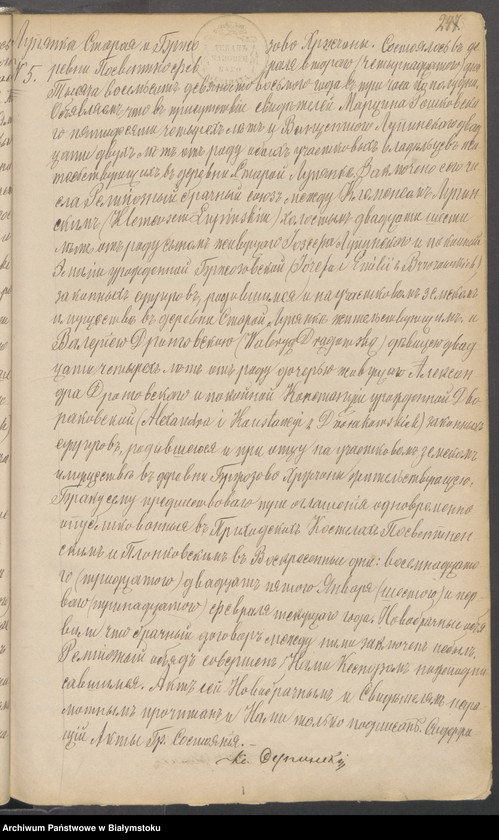 247
Лупянка Старая и Бржо зово Хржчоны. Состоялось въ де
№ 5. ревни Посвентномъ втораго (четырнадцатаго) дня
тысяча восемьсотъ девяносто восьмаго года въ три часа по полудни.
Объявляемъ что въ присутствіи свидѣтелей Марцина Гошковска
го пятидесяти четырехъ лѣтъ и Лупинскаго двад
цати двухъ лѣтъ отъ роду обоихъ участковыхъ владѣльцевъ жи
тельствующихъ въ деревни Старой Лупянкѣ, Заключенъ сего чи
сла Религіозный брачный союзъ между Клеменсомъ Лупин
скимъ (Klemensem Łupińskim) холостымъ двадцати шести
лѣтъ отъ роду сыномъ живущаго Іосефа Лупинскаго и покойной
Эмиліи урожденной Бржозовской (Józefa i Emilii z Brzozowskich)
законныхъ супруговъ, родившимся и на участковомъ земскомъ
имуществѣ въ деревни Старой Лупянкѣ жительствующимъ и
Валеріею дѣвицею двад
цати четырехъ лѣтъ отъ роду дочерью живущаго Алексан
дра и покойной Констанціи урожденной Дво
раковской (Alexandra i Konstancyi z Dworakowskich) законныхъ
супруговъ, родившеюся и при отцу на участковомъ земскомъ
имуществѣ въ деревни Бржозово Хржчоны жительствующею.
Браку сему предшествовало три оглашенія одновременно
опубликованные въ Приходскихъ Костелахъ Посвентнен
скимъ и Плонковскимъ въ Воскресенные дни: восемнадцата
го (тридцатаго) двадцать пятаго Января (шестаго) и пер
ваго (тринадцатаго) Февраля текущаго года. Новобрачные объя
вили что брачный договоръ между ними заключенъ небылъ.
Религіозный обрядъ совершенъ Нами Ксендзомъ нижеподпи
савшимся. Актъ сей Новобрачнымъ и Свидѣтелямъ негра
мотнымъ прочитанъ и Нами только подписанъ. Содержа
щій Акты Гр. Состоянія. —
Кс.
Archiwum Państwowe w Białymstoku